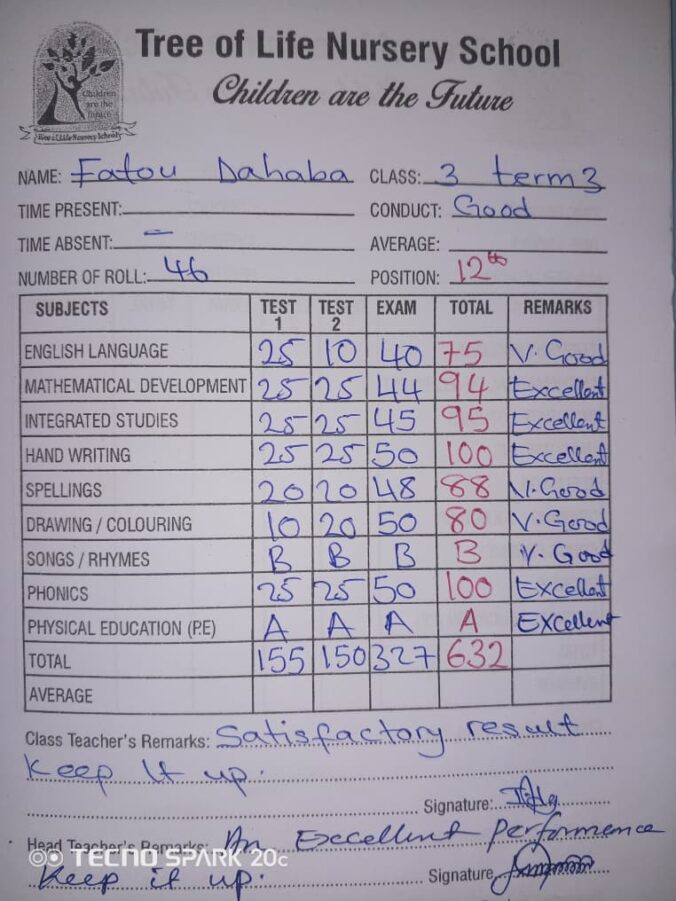 Children
are the
future
Tree of Life Nursery School
Tree of Life Nursery School
Children are the Future
NAME: Fatou Dahaba CLASS: 3 term 3
TIME PRESENT: CONDUCT: Good
TIME ABSENT: – AVERAGE:
NUMBER OF ROLL: 46 POSITION: 12th
SUBJECTS TEST 1 TEST 2 EXAM TOTAL REMARKS
ENGLISH LANGUAGE 25 10 40 75 V. Good
MATHEMATICAL DEVELOPMENT 25 25 44 94 Excellent
INTEGRATED STUDIES 25 25 45 95 Excellent
HAND WRITING 25 25 50 100 Excellent
SPELLINGS 20 20 48 88 V. Good
DRAWING / COLOURING 10 20 50 80 V. Good
SONGS / RHYMES B B B B V. Good
PHONICS 25 25 50 100 Excellent
PHYSICAL EDUCATION (P.E) A A A A EXcellent
TOTAL 155 150 327 632
AVERAGE
Class Teacher's Remarks: Satisfactory result
Keep It up.
Signature:
Head Teacher's Remarks: An Excellent Performence
Keep it up. Signature
TECNO SPARK 20c